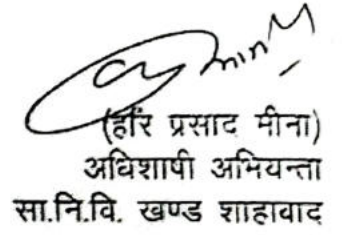 (हरि प्रसाद मीना)
अधिशाषी अभियन्ता
सा.नि.वि. खण्ड शाहावाद